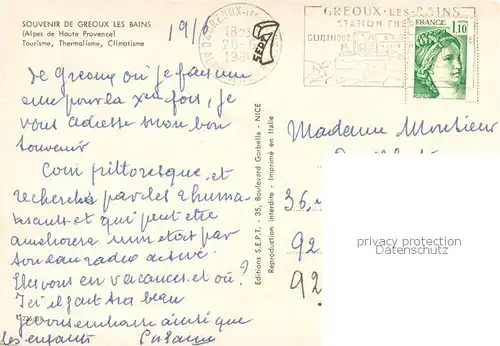 SOUVENIR DE GREOUX LES BAINS
(Alpes de Haute Provence)
Tourisme, Thermalisme, Climatisme
19/6
GREOUX-LES-BAINS
STATION
FRANCE
1,10
POSTES
SEPT
de Greoux où je fais une
cure pour la Xème fois, je
vous adresse mon bon
souvenir
Coin pittoresque, et
recherché par les rhuma-
tisants et qui peut être
améliorera mon état par
son eau radio active.
Irez vous en vacances et où?
Ici il fait très beau
Je vous embrasse ainsi que
les enfants
Madame Monsieur
36
92
92
Editions S.E.P.T. - 35, Boulevard Gorbella - NICE
Reproduction interdite - Imprimé en Italie
privacy protection
Datenschutz